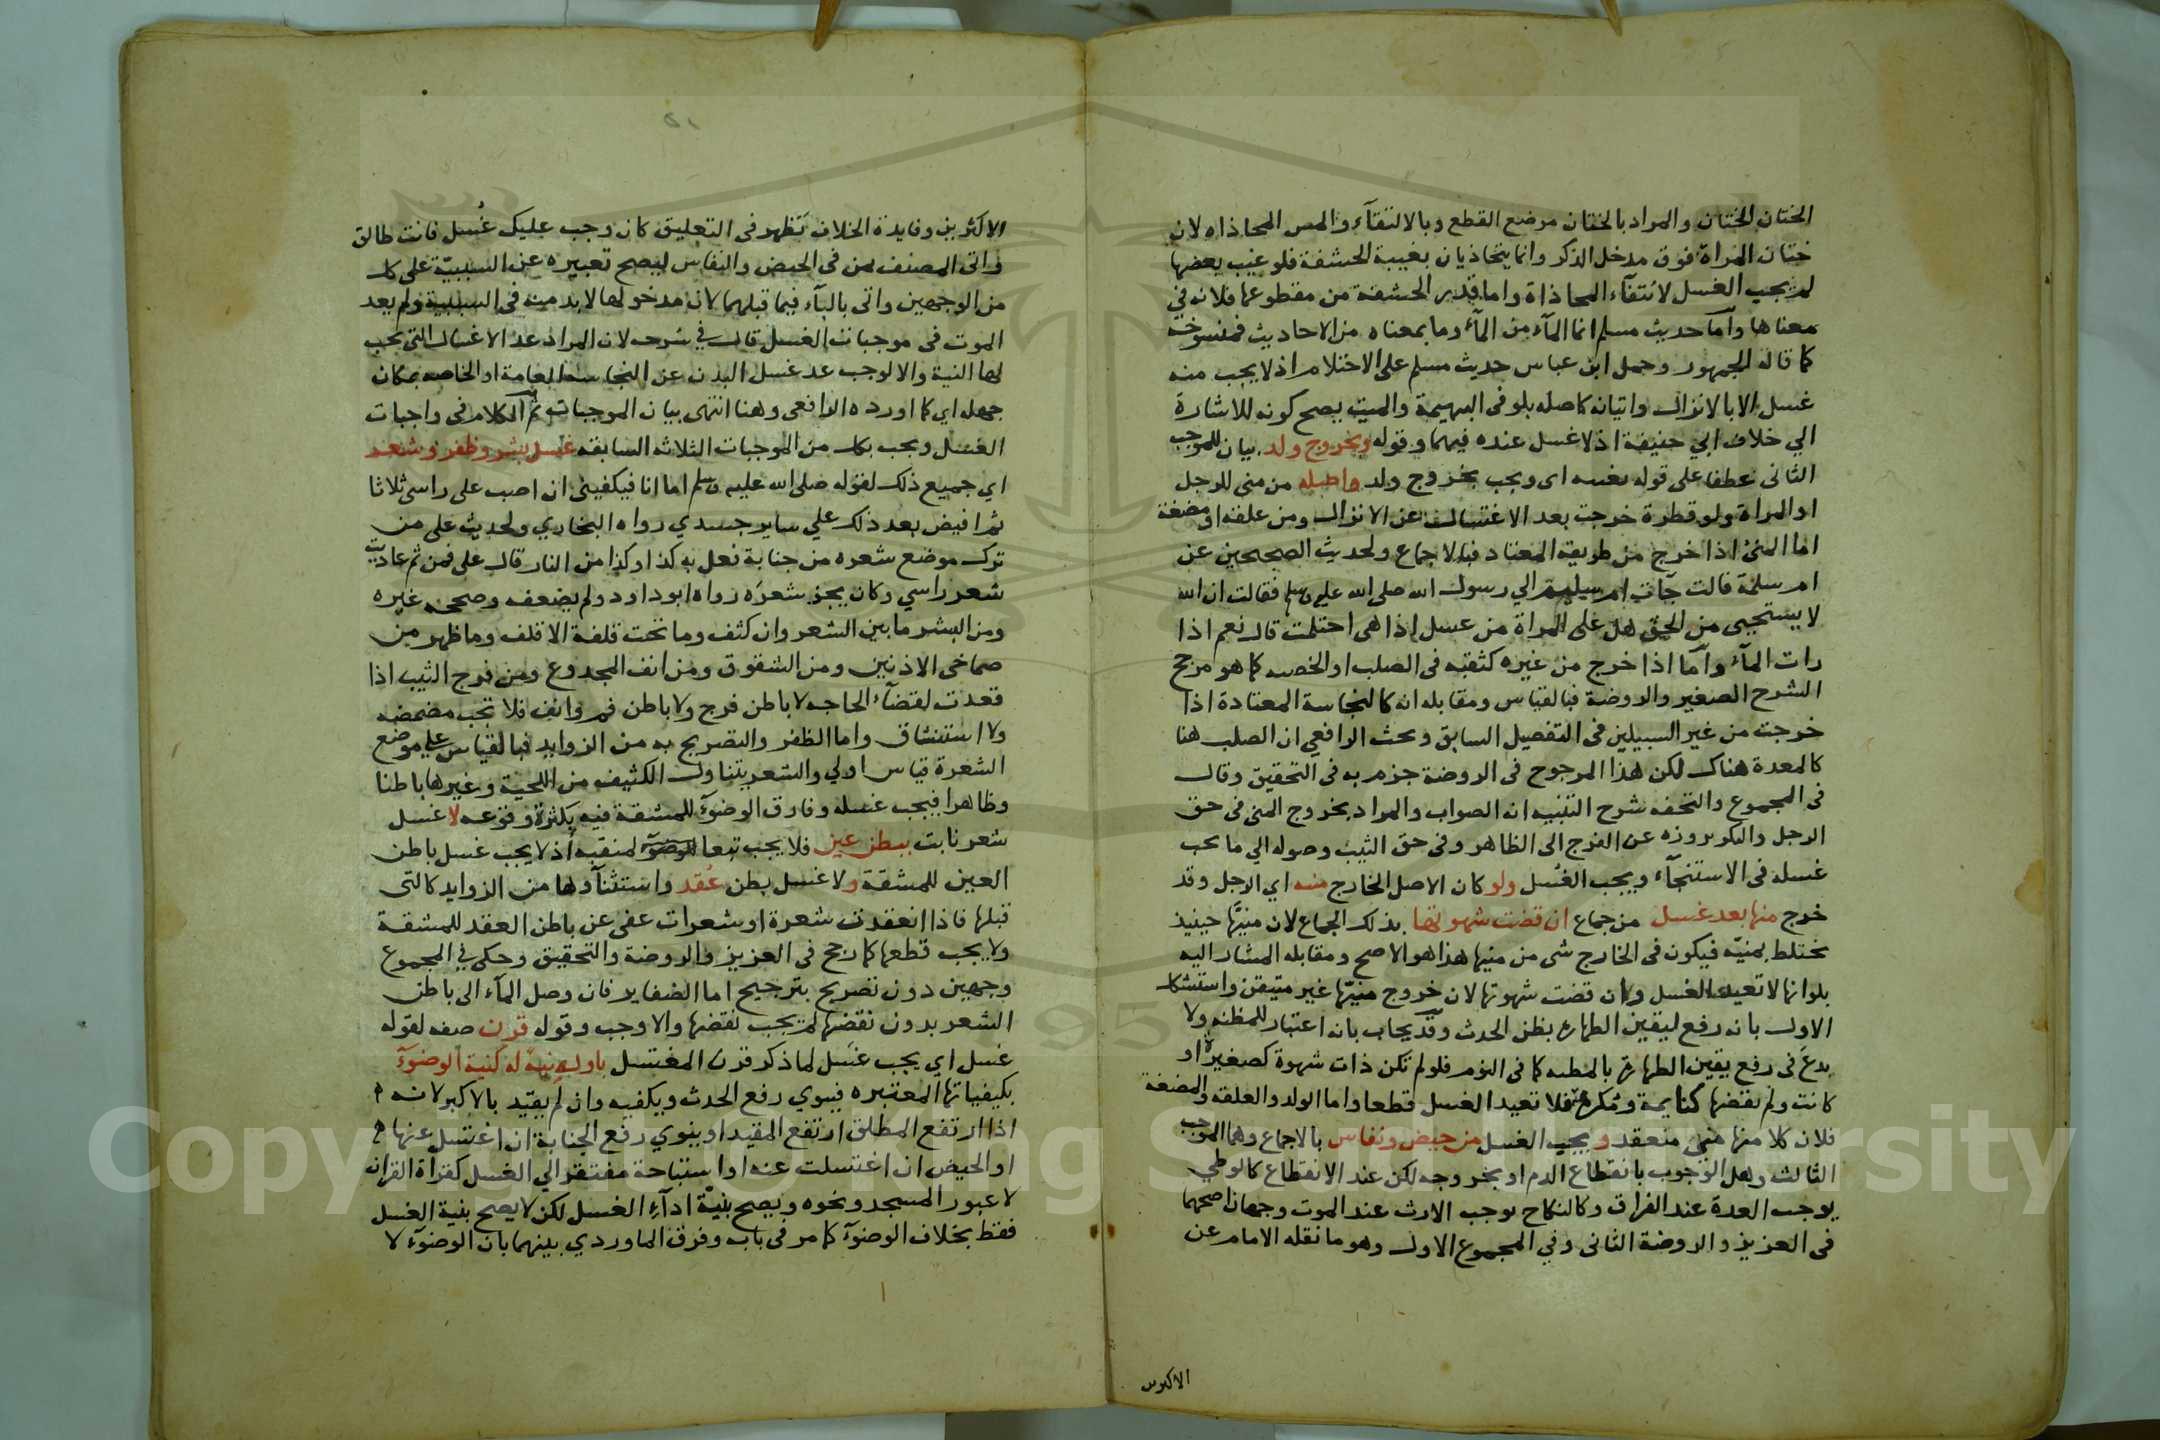 الختان الختان والمراد بالختان موضع القطع وبالالتقآء والمس المحاذاه لان
ختان المراة فوق مدخل الذكر وانما يتحاذيان بغيبة الحشفة فلو غيب بعضها
لم يجب الغسل لانتفآء المحاذاة واما قدر الحشفة من مقطوعها فلانه في
معناها وأما حديث مسلم انما المآء من المآء وما بمعناه من الاحاديث فمنسوخه
كما قاله الجمهور وحمل ابن عباس حديث مسلم على الاحتلام اذ لا يجب منه
غسل الا بالانزال واتيانه كاصله بلو فى البهيمة والميت يصح كونه للاشارة
الي خلاف ابي حنيفة اذ لا غسل عنده فيهما وقوله وبخروج ولد بيان للموجب
الثانى عطفا على قوله بغيبه اى ويجب بخروج ولد واصله من منى للرجل
او المراة ولو قطرة خرجت بعد الاغتسال عن الانزال ومن علقه او مضغة
اما المنى اذا خرج من طريقه المعتاد فبالاجماع ولحديث الصحيحين عن
ام سلمة قالت جآت ام سليم الي رسول الله صلى الله عليه وسلم فقالت ان الله
لا يستحيى من الحق هل على المراة من غسل اذا هى احتلمت قال نعم اذا
رات المآء وأما اذا خرج من غيره كثقبه فى الصلب او الخصيه كما هو مرجح
الشرح الصغير والروضة فبالقياس ومقابله انه كالنجاسة المعتادة اذا
خرجت من غير السبيلين فى التفصيل السابق وبحث الرافعي ان الصلب هنا
كالمعدة هناك لكن هذا المرجوح فى الروضة جزم به فى التحقيق وقال
فى المجموع والتحفه شرح التنبيه انه الصواب والمراد بخروج المنى فى حق
الرجل والبكر بروزه عن الفرج الى الظاهر وفى حق الثيب وصوله الي ما يجب
غسله فى الاستنجآء ويجب الغسل ولو كان الاصل الخارج منه اي الرجل وقد
خرج منها بعد غسل من جماع ان قضت شهوتها بذلك الجماع لان منيها حينيذ
يختلط بمنيه فيكون فى الخارج شى من منيها هذا هو الاصح ومقابله المشار اليه
بلو انها لا تعيد الغسل وان قضت شهوتها لان خروج منيها غير متيقن واستشكل
الاول بانه رفع ليقين الطهارة بظن الحدث وقد يجاب بانه اعتبار للمظنه ولا
بدع فى رفع يقين الطهارة بالمظنه كما فى النوم فلو لم تكن ذات شهوة كصغيرة او
كانت ولم تقضها كنايمة ومكرهة فلا تعيد الغسل قطعا واما الولد والعلقه والمضغة
فلان كلا منها منى منعقد ويجب الغسل من حيض ونفاس بالاجماع وهما الموجب
الثالث وهل الوجوب بانقطاع الدم او بخروجه لكن عند الانقطاع كالوطي
يوجب العدة عند الفراق وكالنكاح يوجب الارث عند الموت وجهان اصحهما
فى العزيز والروضة الثانى وفي المجموع الاول وهو ما نقله الامام عن
الاكثرين
الاكثرين وفايدة الخلاف تظهر فى التعليق كان وجب عليك غُسل فانت طالق
واتى المصنف بمن فى الحيض والنفاس ليصح تعبيره عن السببيّة على كل
من الوجهين واتى بالبآء فيما قبلهما لان مدخولها لا بد منه فى السببية ولم يعد
الموت فى موجبات الغسل قال في شرحه لان المراد عد الاغسال التي يجب
لها النية والا لوجب عد غسل البدن عن النجاسه العامة او الخاصه بمكان
جهل اي كما اورده الرافعى وهنا انتهى بيان الموجبات ثم الكلام فى واجبات
الغسل ويجب بكل من الموجبات الثلاثه السابقه غسل بشر وظفر وشعر
اي جميع ذلك لقوله صلى الله عليه وسلم اما انا فيكفينى ان اصب على راسي ثلاثا
ثم افيض بعد ذلك علي ساير جسدي رواه البخاري ولحديث على من
ترك موضع شعره من جنابة فعل به كذا وكذا من النار قال على فمن ثم عاديت
شعر راسي وكان يجز شعرَه رواه ابو داود ولم يضعفه وصححه غيره
ومن البشر ما بين الشعر وان كثف وما تحت قلفة الاقلف وما ظهر من
صماخى الاذنين ومن الشقوق ومن انف المجدوع ومن فرج الثيب اذا
قعدت لقضآء الحاجه لا باطن فرج ولا باطن فم وانف فلا تجب مضمضه
ولا استنشاق واما الظفر والتصريح به من الزوايد فبالقياس على موضع
الشعرة قياس اولي والشعر يتناول الكثيف من اللحية وغيرها باطنا
وظاهرا فيجب غسله وفارق الوضوء للمشقة فيه بكثرة وقوعه لا غسل
شعر نابت ببطن عين فلا يجب تبعا لمنبته اذ لا يجب غسل باطن
العين للمشقة ولا غسل بطن عُقد واستثنآوها من الزوايد كالتى
قبلها فاذا انعقدت شعرة او شعرات عفى عن باطن العقد للمشقة
ولا يجب قطعها كما رجح فى العزيز والروضة والتحقيق وحكى في المجموع
وجهين دون تصريح بترجيح اما الضفاير فان وصل المآء الى باطن
الشعر بدون نقضها لم يجب نقضها والا وجب وقوله قرن صفه لقوله
غسل اي يجب غسل لما ذكر قرن المغتسل باوله نية له كنية الوضوء
بكيفياتها المعتبره فينوي رفع الحدث ويكفيه وان لم يقيّد بالاكبر لانه
اذا ارتفع المطلق ارتفع المقيد او ينوي رفع الجنابة ان اغتسل عنها
او الحيض ان اغتسلت عنه او استباحة مفتقر الي الغسل كقراة القران
لا عبور المسجد ونحوه ويصح بنيّة ادآء الغسل لكن لا يصح بنية الغسل
فقط بخلاف الوضوء كما مر فى بابه وفرق الماوردي بينهما بان الوضوء لا
Copyright © King Saud University